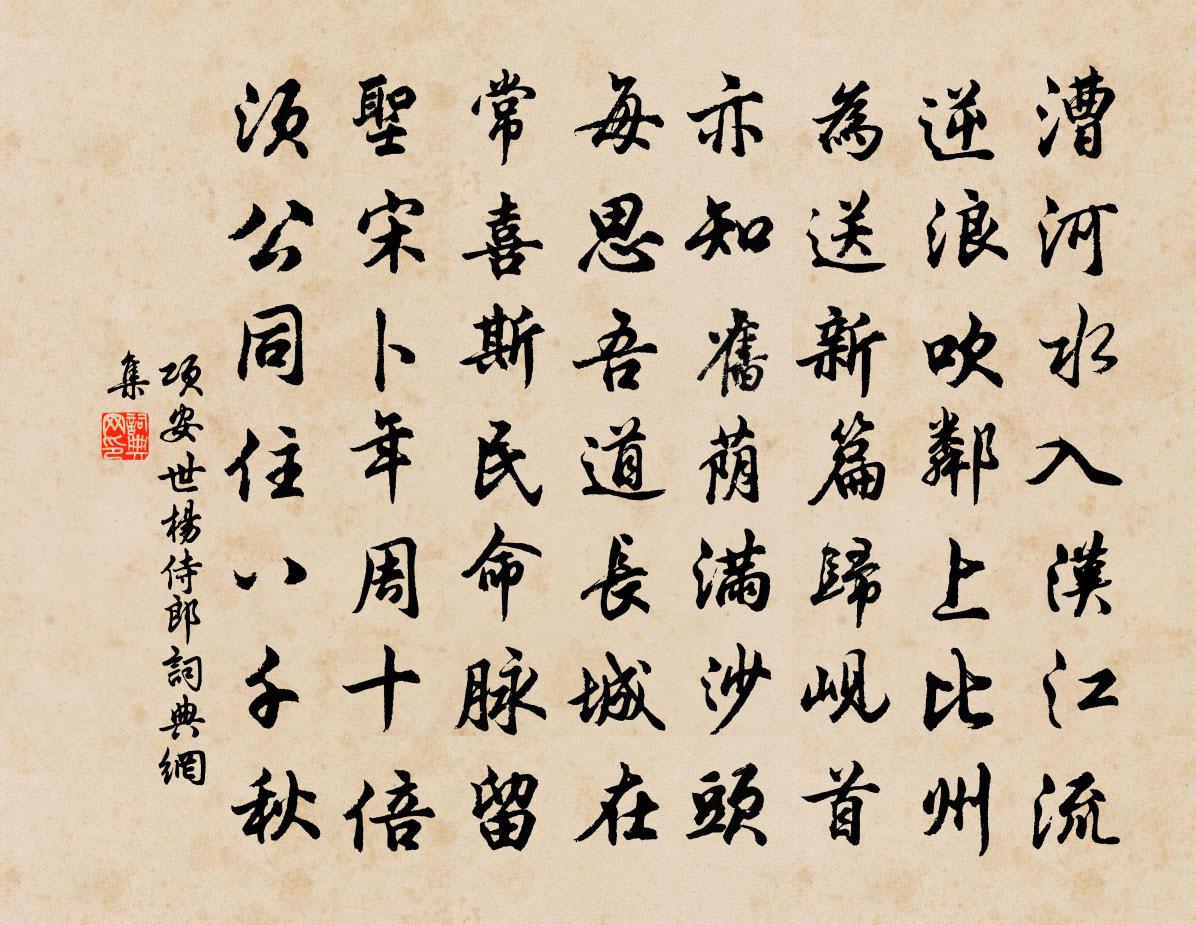 漕河水入漢江流
逆浪吹鄰上比州
為送新篇歸峴首
亦知舊蔭滿沙頭
每思吾道長城在
常喜斯民命脉留
聖宋卜年周十倍
須公同住八千秋
項安世楊侍郎詞典網
集
詞典网印